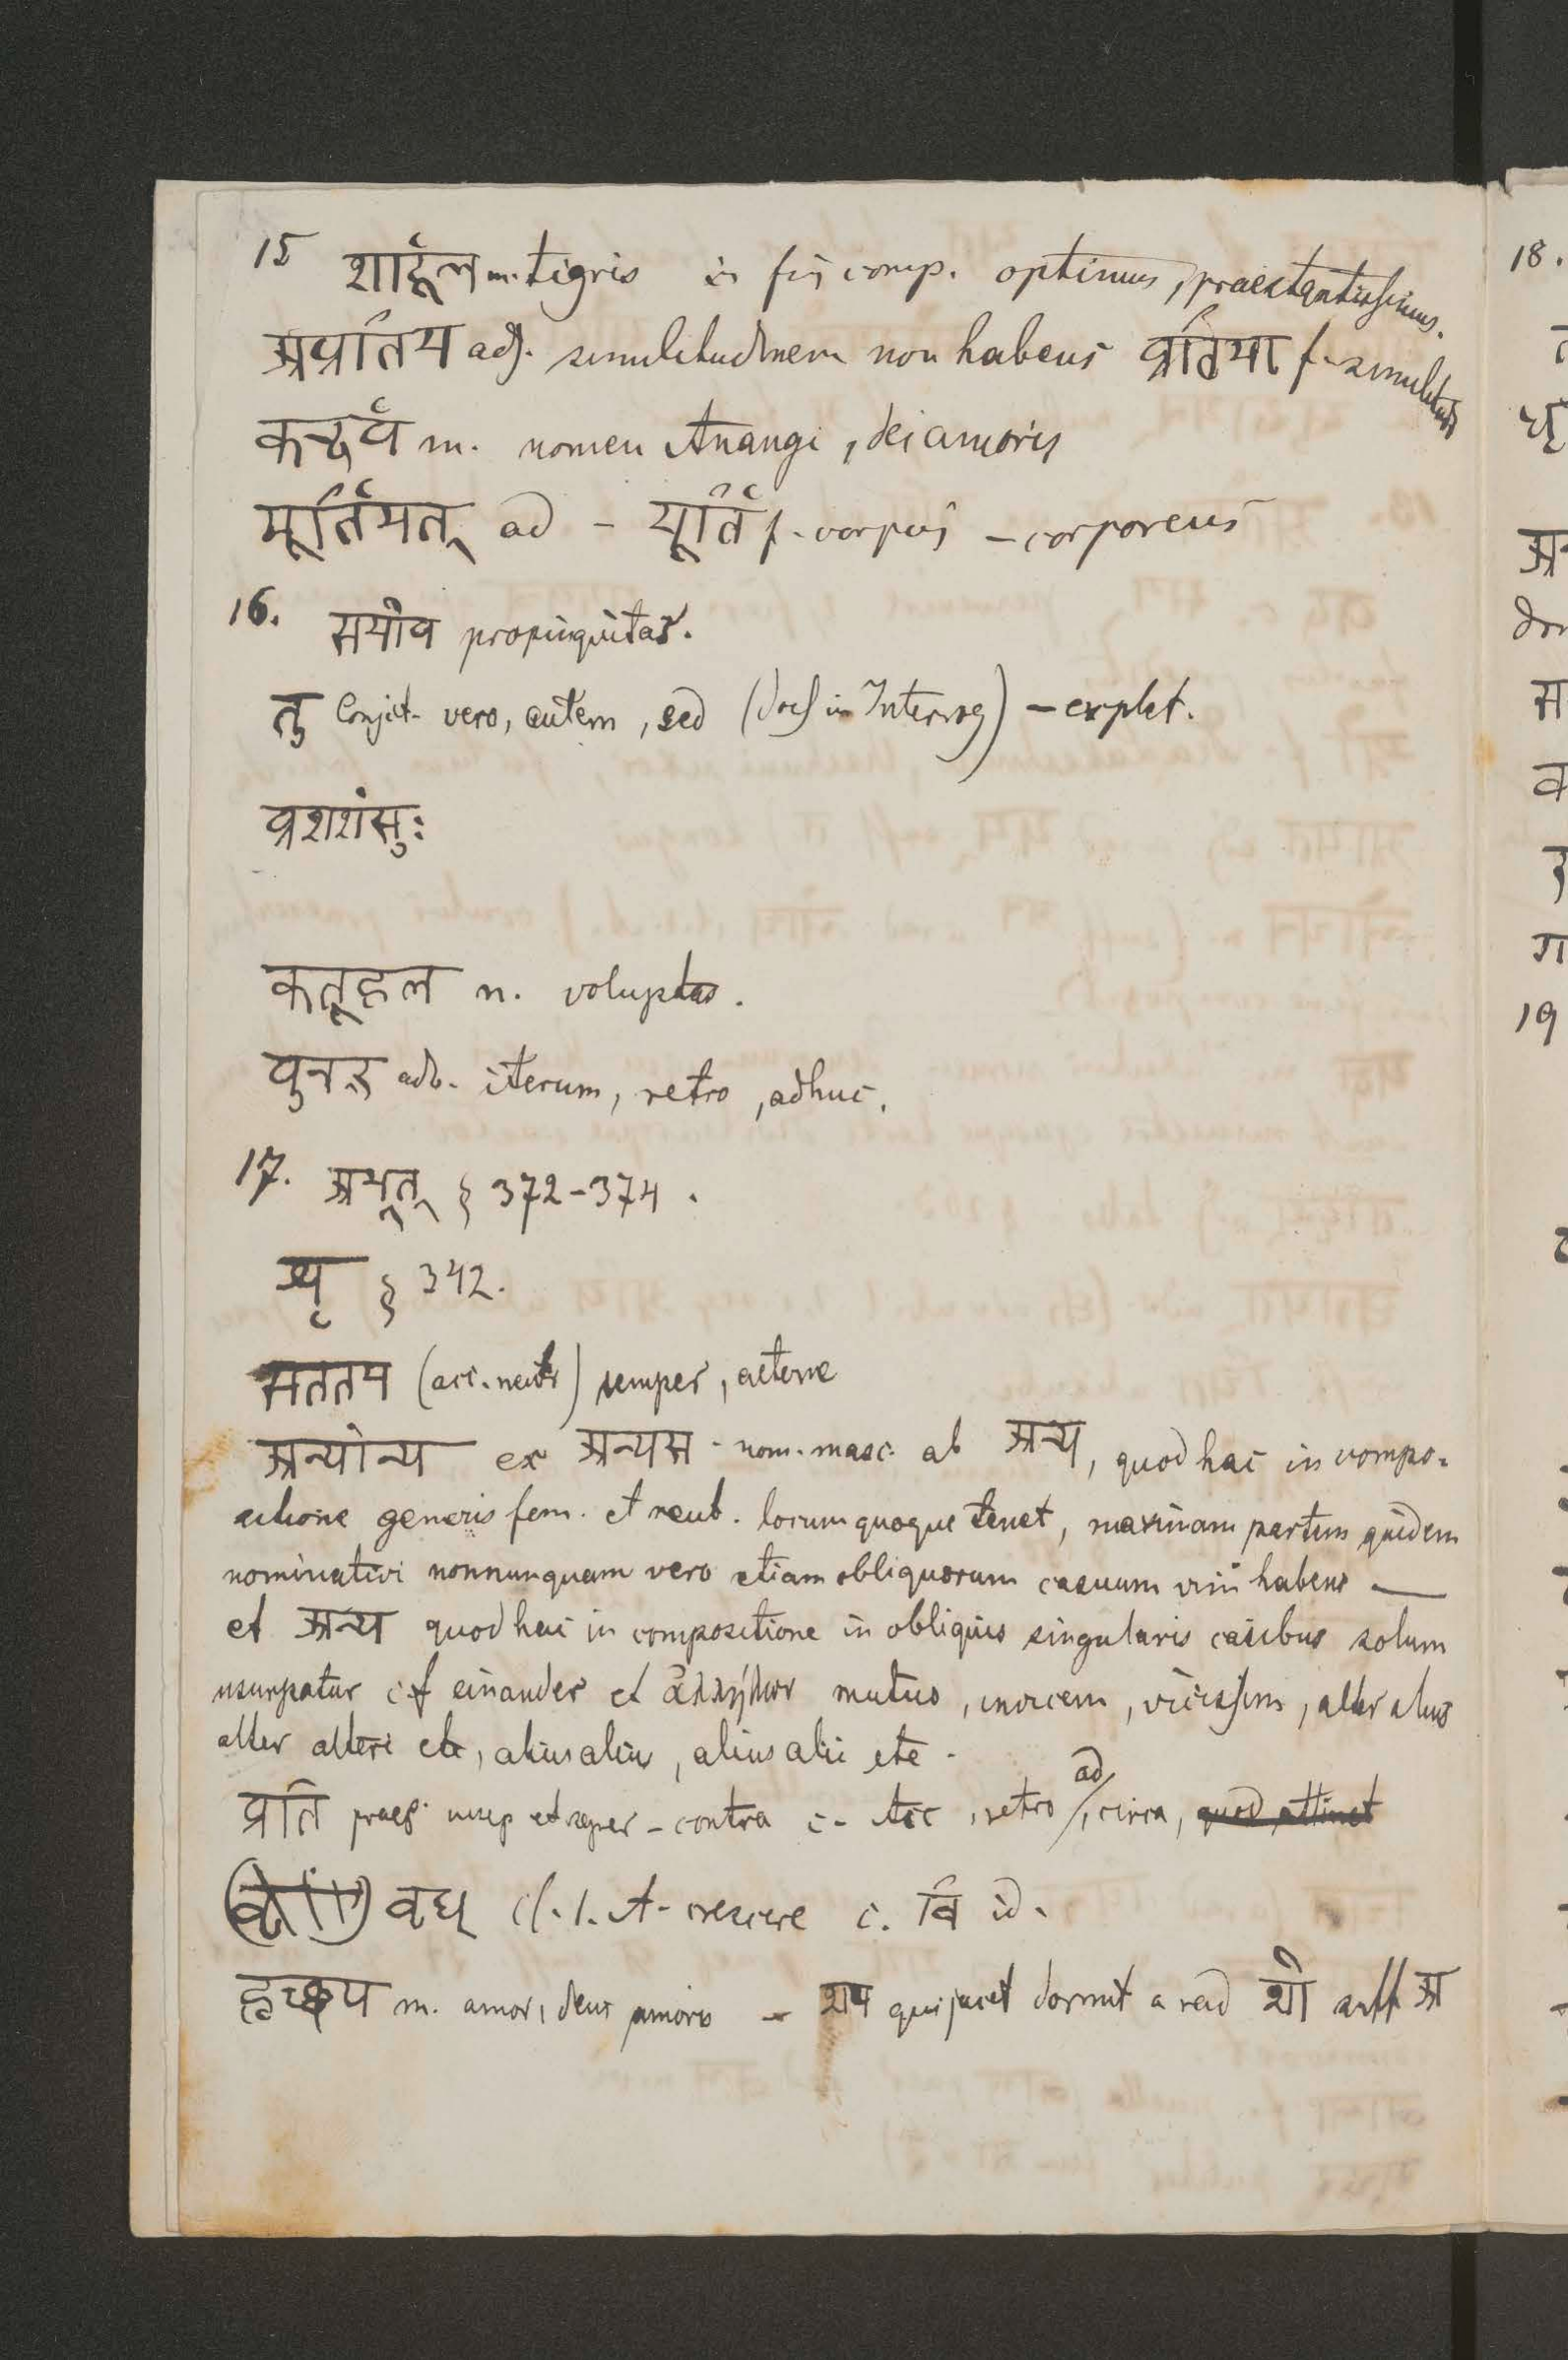 15 शार्दूल m. tigris in fin comp. optimus, praestantissimus.
अप्रतिम adj. similitudinem non habens प्रतिमा f. similitudo
कन्दर्प m. nomen Anangi, dei amoris
मूर्तिमत् ad - मूर्ति f. corpus - corporeus
16. समीप propinquitas.
तु Conjct. vero, autem, sed (doch in Interrog) - explet.
प्रशशंसुः
कतूहल n. voluptas.
पुनर् adv. iterum, retro, adhuc.
17. अभूत् § 372-374.
शृ § 342.
सततम (acc. neutr) semper, aeterne
अन्योन्य ex अन्यस - nom. masc. ab अन्य, quod hac in compo-
sitione generis fem. et neut. locum quoque tenet, maximam partem quidem
nominativi nonnunquam vero etiam obliquorum casuum vim habens —
et अन्य quod hac in compositione in obliquis singularis casibus solum
usurpatur cf einander et ἀλλήλων mutuo, invicem, vicissim, alter alius
alter alteri etc, alius alius, alius alii etc.
प्रति praef. insep et seper - contra c. Acc, retro, ad, circa, quod attinet
वृध् Cl. 1. A. crescere c. वि id.
हृच्छय m. amor, deus amoris - शय qui jacet dormit a rad शी suff अ
18.
19